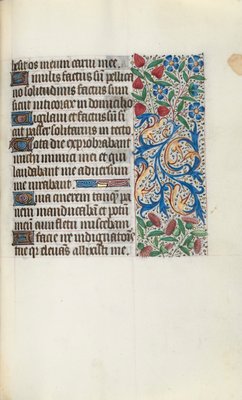 hesit os meum carni mee.
Similis factus sũ pellica
no solitudinis factus sum
sicut nicticorax in domicilio
Vigilavi et factus sũ si
cut passer solitarius in tecto
Tota die exprobrabant
michi inimici mei et qui
laudabant me adversum
me iurabant
Quia cinerem tanq̃ pa
nem manducabã et potũ
meũ cum fletu miscebam
A facie ire indignationis
tue qr elevans allisisti me.